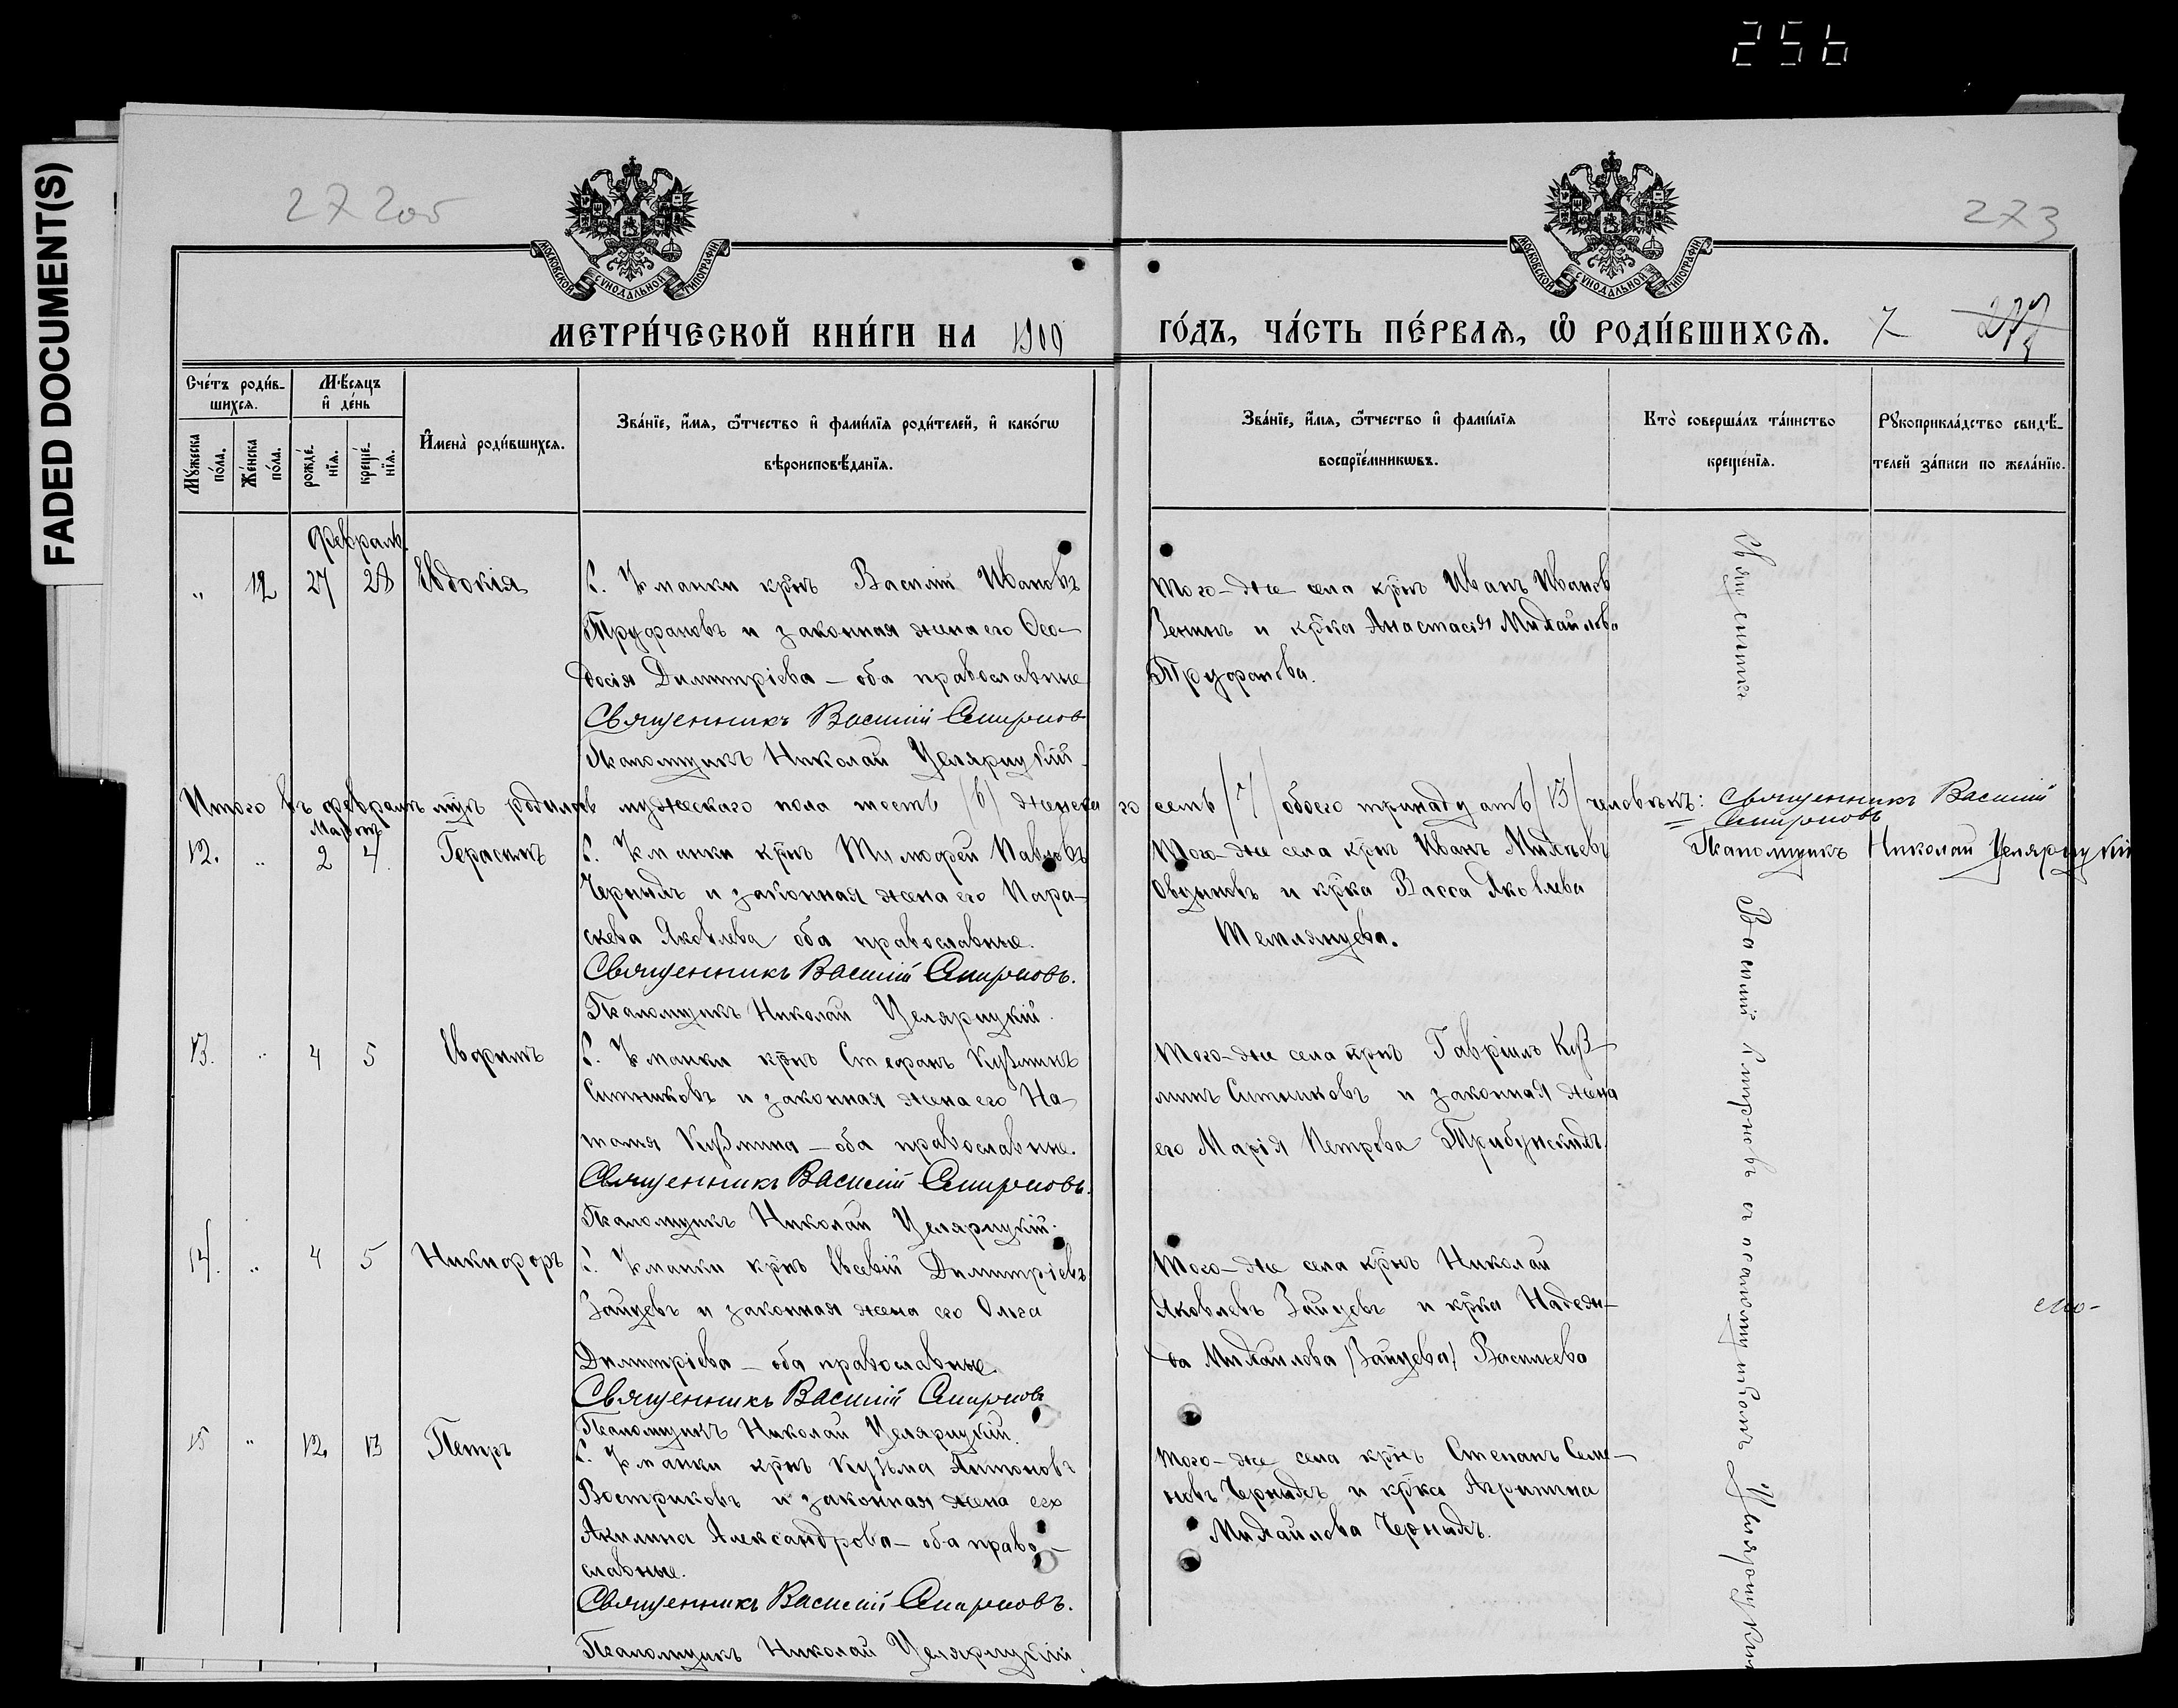 256
FADED DOCUMENT(S)
27 2об
273
МОСКОВСКОЙ СѴНОДАЛЬНОЙ ТИПОГРАФІИ
МОСКОВСКОЙ СѴНОДАЛЬНОЙ ТИПОГРАФІИ
МЕТРИ́ЧЕСКОЙ КНИ́ГИ НА 1900 ГО́ДЪ, ЧА́СТЬ ПЕ́РВАѦ, Ѡ҆ РОДИ́ВШИХСѦ. 7
Сче́тъ роди́вшихсѧ.
Мѣ́сѧцъ и҆ де́нь
Мꙋ́жеска по́ла.
Же́нска по́ла.
рожде́нїѧ.
креще́нїѧ.
И҆мена̀ роди́вшихсѧ.
Зва́нїе, и҆́мѧ, ѻ҆́тчество и҆ фами́лїѧ роди́телей, и҆ како́гѡ
вѣроисповѣ́данїѧ.
Зва́нїе, и҆́мѧ, ѻ҆́тчество и҆ фами́лїѧ
воспрїе́мникѡвъ.
Кто̀ соверша́лъ та́инство
креще́нїѧ.
Рꙋкоприкла́дство свидѣ́-
телей за́писи по жела́нїю.
Февраль
" 12 27 28 Евдокія
С. Кманки крнъ Василій Ивановъ
Труфановъ и законная жена его Ѳео-
досія Димитріева - оба православные
Священникъ Василій Смирнов
Псаломщикъ Николай Целярицкій
Того-же села крнъ Иванъ Иванов
Зенинъ и крка Анастасія Михайлова
Труфанова.
Священникъ
Итого въ февралѣ мцѣ родилось мужескаго пола шесть /6/ женскаго семь /7/ обоего тринадцать /13/ человѣкъ: Священникъ Василій
Смирновъ
Псаломщикъ Николай Целярицкій
Мартъ
12. " 2 4. Герасимъ
С. Кманки крнъ Тимофей Павловъ
Черныхъ и законная жена его Пара-
скева Яковлева оба православные.
Священникъ Василій Смирновъ.
Псаломщикъ Николай Целярицкій.
Того-же села крнъ Иванъ Михеевъ
Овчиновъ и крка Васса Яковлева
13. " 4 5 Евфимъ
С. Кманки крнъ Стефанъ Кузминъ
Ситниковъ и законная жена его На-
талія Кузмина - оба православные.
Священникъ Василій Смирновъ.
Псаломщикъ Николай Целярицкій.
Того-же села крнъ Гавріилъ Куз-
минъ Ситниковъ и законная жена
его Марія Петрова Трибунскихъ
14. " 4 5 Никифоръ
С. Кманки крнъ Евсевій Димитріевъ
Зайцевъ и законная жена его Ольга
Димитріева - оба православные.
Священникъ Василій Смирновъ
Псаломщикъ Николай Целярицкій.
Того-же села крнъ Николай
Яковлевъ Зайцевъ и крка Надеж-
да Михайлова /Зайцева/ Васильева
15 " 12 13 Петръ
С. Кманки крнъ Кузьма Антоновъ
Востриковъ и законная жена его
Акилина Александрова - оба право-
славные.
Священникъ Василій Смирновъ.
Псаломщикъ Николай Целярицкій.
Того-же села крнъ Степанъ Семе-
новъ Черныхъ и крка Агрипина
Михайлова Черныхъ.
Василій Смирновъ съ псаломщикомъ Целярицкимъ